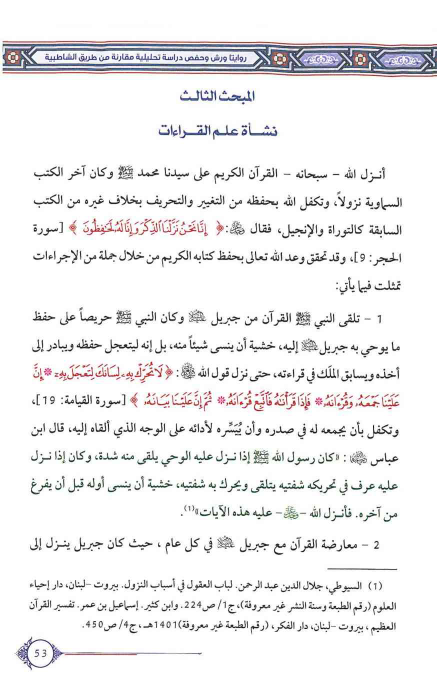 روايتا ورش وحفص دراسة تحليلية مقارنة من طريق الشاطبية
المبحث الثالث
نشأة علم القراءات
أنـزل الله - سبحانه - القرآن الكريم على سيدنا محمد ﷺ وكان آخر الكتب
السماوية نزولاً، وتكفل الله بحفظه من التغيير والتحريف بخلاف غيره من الكتب
السابقة كالتوراة والإنجيل، فقال ﷻ: ﴿ إِنَّا نَحْنُ نَزَّلْنَا ٱلذِّكْرَ وَإِنَّا لَهُۥ لَحَٰفِظُونَ ﴾ [سورة
الحجر: 9]، وقد تحقق وعد الله تعالى بحفظ كتابه الكريم من خلال جملة من الإجراءات
تمثلت فيما يأتي:
1 - تلقى النبي ﷺ القرآن من جبريل وكان النبي ﷺ حريصاً على حفظ
ما يوحي به جبريل إليه، خشية أن ينسى شيئاً منه، بل إنه ليتعجل حفظه ويبادر إلى
أخذه ويسابق الملَك في قراءته، حتى نزل قول الله ﷻ: ﴿ لَا تُحَرِّكْ بِهِۦ لِسَانَكَ لِتَعْجَلَ بِهِۦٓ * إِنَّ
عَلَيْنَا جَمْعَهُۥ وَقُرْءَانَهُۥ * فَإِذَا قَرَأْنَٰهُ فَٱتَّبِعْ قُرْءَانَهُۥ * ثُمَّ إِنَّ عَلَيْنَا بَيَانَهُۥ ﴾ [سورة القيامة: 19]،
وتكفل بأن يجمعه له في صدره وأن يُيَسِّره لأدائه على الوجه الذي ألقاه إليه، قال ابن
عباس : «كان رسول الله ﷺ إذا نزل عليه الوحي يلقى منه شدة، وكان إذا نزل
عليه عرف في تحريكه شفتيه يتلقى ويحرك به شفتيه، خشية أن ينسى أوله قبل أن يفرغ
من آخره. فأنـزل الله -ﷻ- عليه هذه الآيات»(1).
2 - معارضة القرآن مع جبريل في كل عام ، حيث كان جبريل ينـزل إلى
(1) السيوطي، جلال الدين عبد الرحمن. لباب العقول في أسباب النزول. بيروت -لبنان، دار إحياء
العلوم (رقم الطبعة وسنة النشر غير معروفة)، ج1/ ص224. وابن كثير. إسماعيل بن عمر. تفسير القرآن
العظيم ، بيروت -لبنان، دار الفكر، (رقم الطبعة غير معروفة)1401هـ، ج4/ ص450.
53